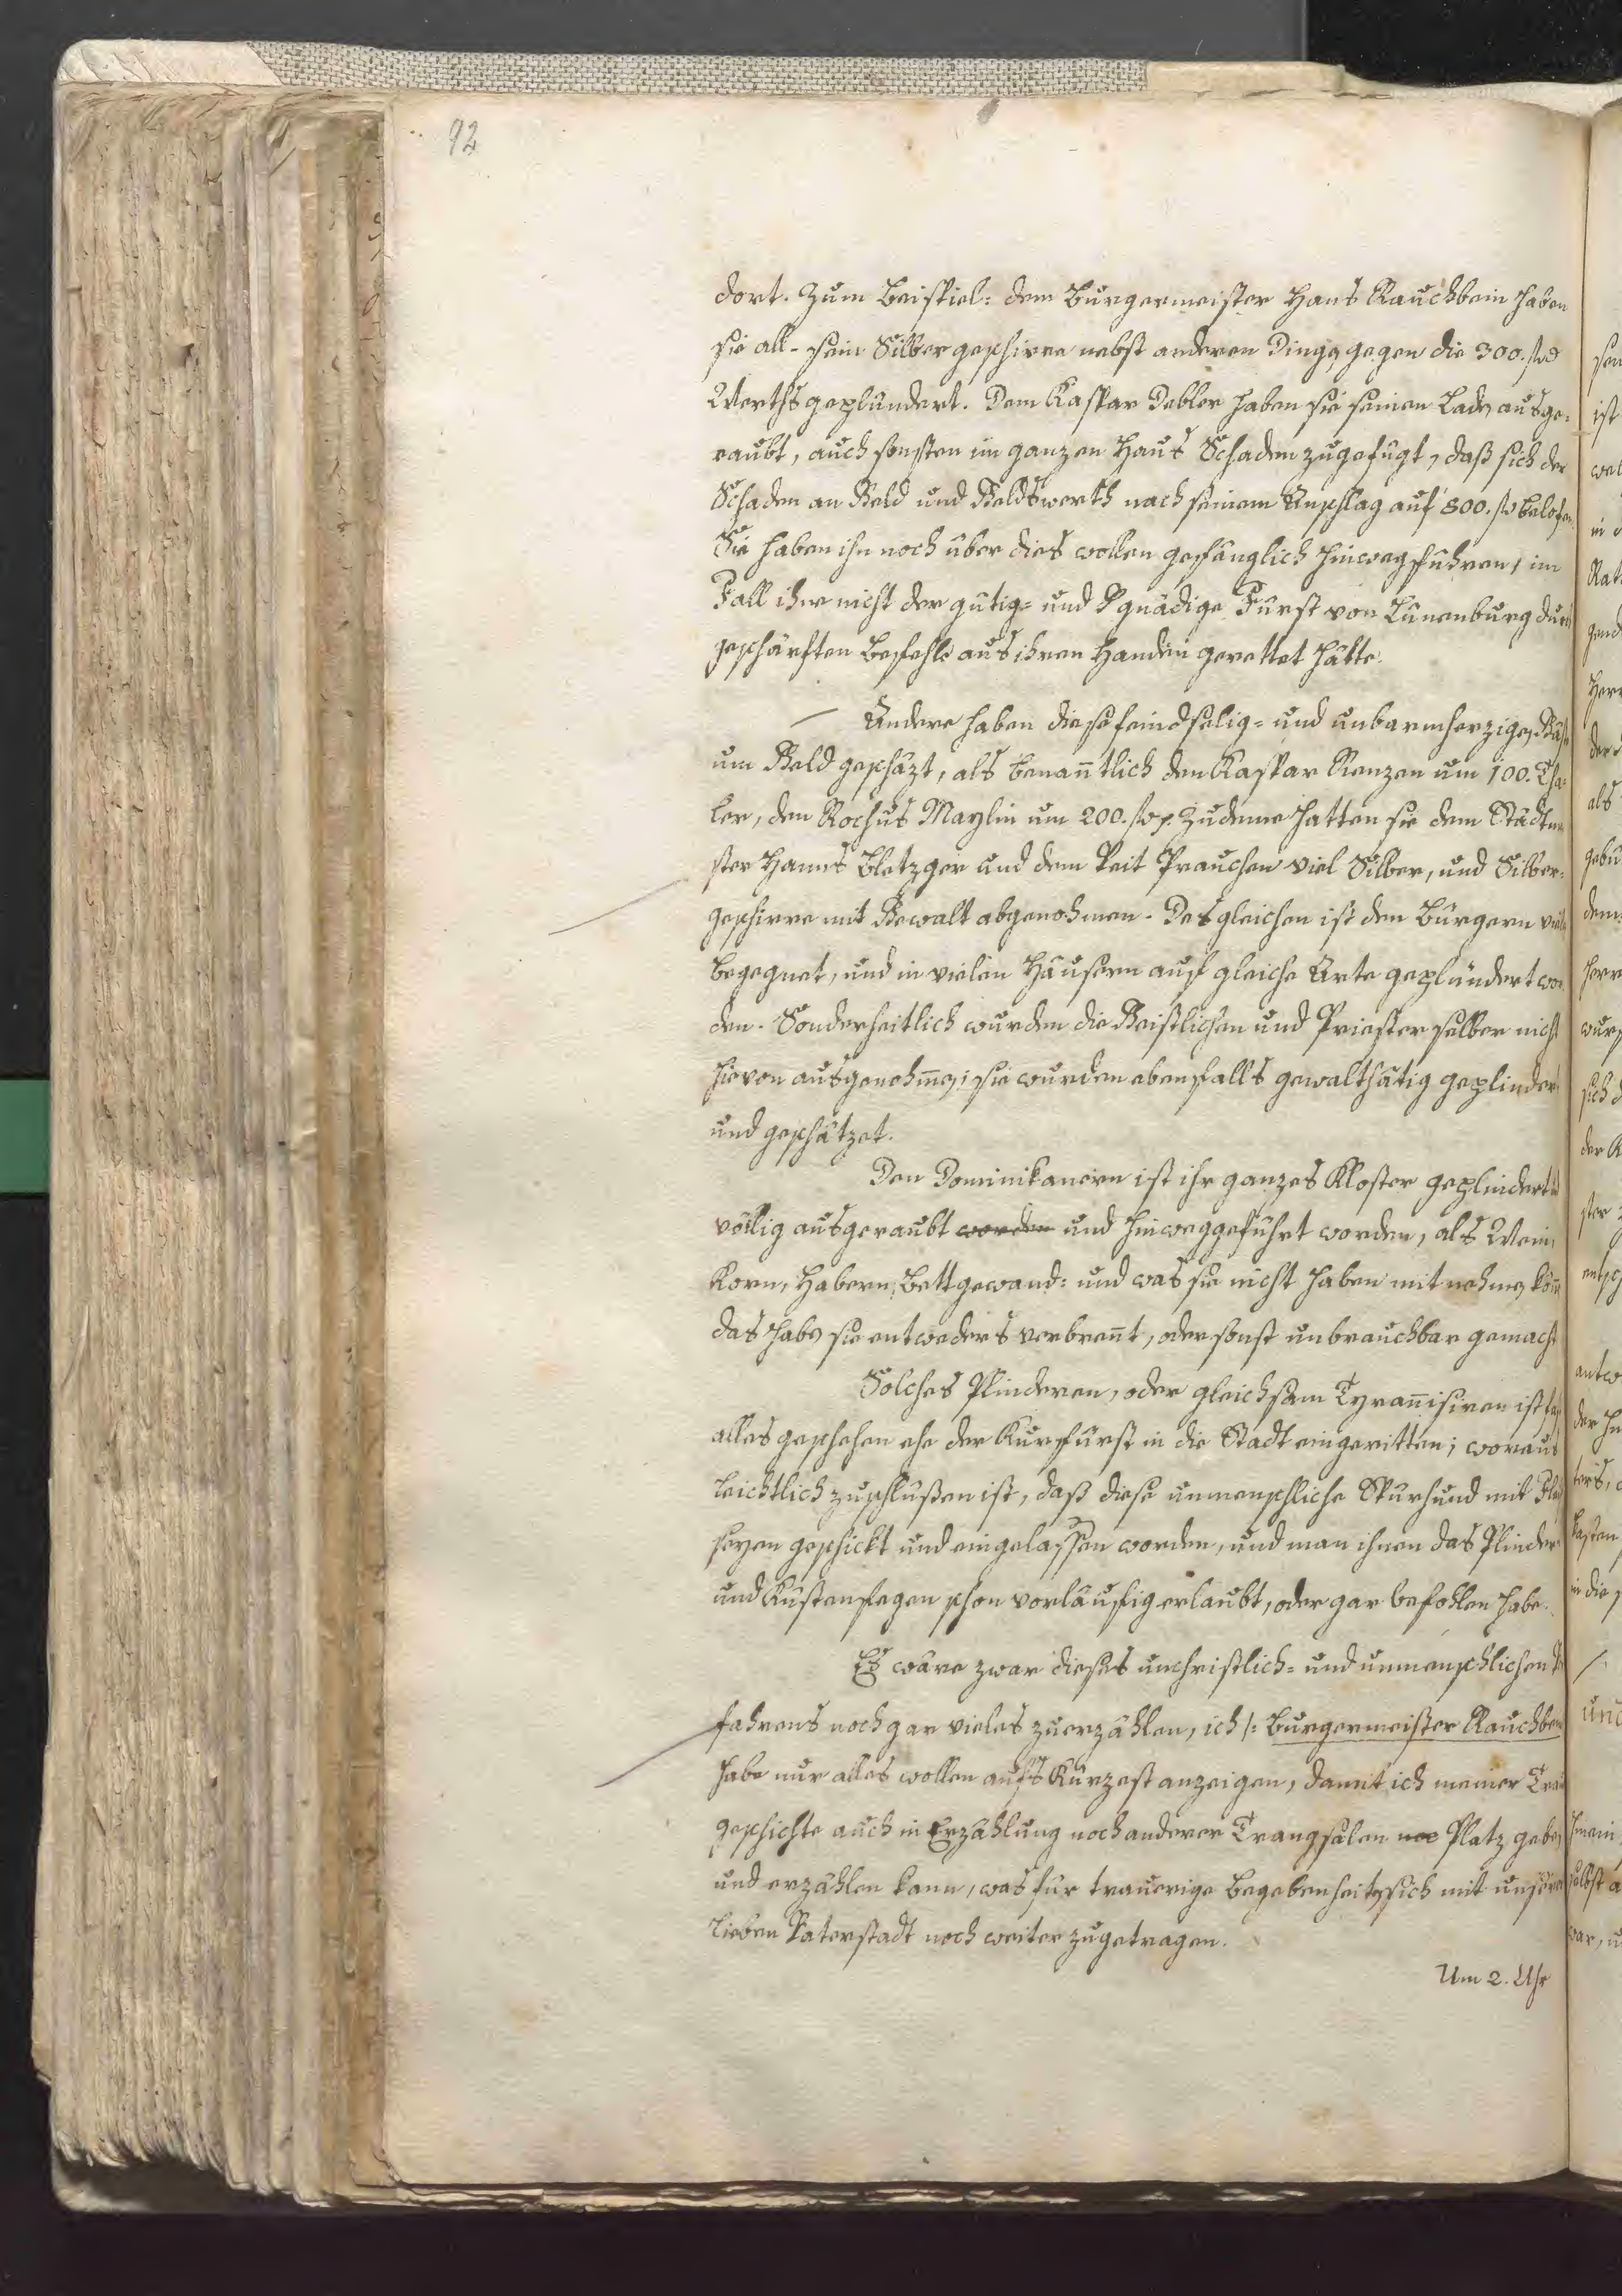 92
dort. Zum Beispiel: dem Burgermeister Hans Rauchbein haben
sie all- sein Silbergeschirre nebst anderen Dingen gegen die 300. fl
Werths geplündert. Dem Kaspar Debler haben sie seinen Laden ausge=
raubt, auch sonsten im ganzen Haus Schaden zugefügt, daß sich der
Schaden an Geld und Geldswerth nach seinem Anschlag auf 800. fl belofen.
Sie haben ihn noch über dies wollen gefänglich hinwegführen, im
Fall ihne nicht der gütig= und gnädige Fürst von Lünenburg durch
geschärften Befehle aus ihren Handen gerettet hätte.
Andere haben diese feindselig= und unbarmherzigen Gäste
um Geld geschäzt, als benanntlich den Kaspar Kienzen um 100. Tha=
ler, den Rochus Maylin um 200. fl. Zudeme hatten sie dem Stadtm
ster Hanns Bletzger und dem Veit Prauchen viel Silber, und Silber=
geschirre mit Gewalt abgenohmen. Desgleichen ist den Bürgern viel
begegnet, und in vielen Häusern auf gleiche Arte geplündert wor
den. Sonderheitlich wurden die Geistlichen und Priester selber nicht
hievon ausgenohmen; sie wurden ebenfalls gewalthätig geplindert
und geschätzet.
Den Dominikanern ist ihr ganzes Kloster geplindert
völlig ausgeraubt worden und hinweggeführt worden, als Wein,
Korn, Habern, Bettgewand= und was sie nicht haben mit nehmen könn
das haben sie entweders verbrennt, oder sonst unbrauchbar gemacht
Solches Plinderen, oder gleichsam Tyrannisiren ist fast
alles geschehen ehe der Kurfürst in die Stadt eingeritten; woraus
leichtlich zuschlüßen ist, daß diese unmenschliche Spurhund mit Fleiß
seyen geschickt und eingelassen worden, und man ihnen das Plinder
und Küstenfegen schon vorläufig erlaubt, oder gar befohlen habe.
Es wäre zwar dieses unchristlich= und unmenschlichen
fahrens noch gar vieles zuerzählen, ich /: Burgermeister Rauchbein
habe nur alles wollen aufs Kürzest anzeigen, damit ich meiner Trau
geschichte auch in Erzählung noch anderer Trangsalen noc Platz geben
und erzählen kann, was für trauerige Begebenheiten sich mit unserer
lieben Vaterstadt noch weiter zugetragen.
Um 2. Uhr